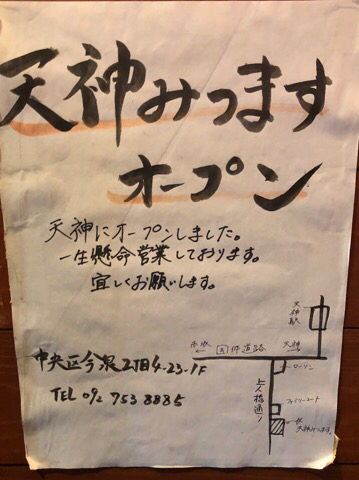 天神みつます
オープン
天神にオープンしました。
一生懸命営業しております。
宜しくお願いします。
中央区今泉2丁目4-23-1F
TEL 092 753 8885
天神駅
天神
国体道路
上人橋通り
ローソン
ファミリーマート
天神みつます